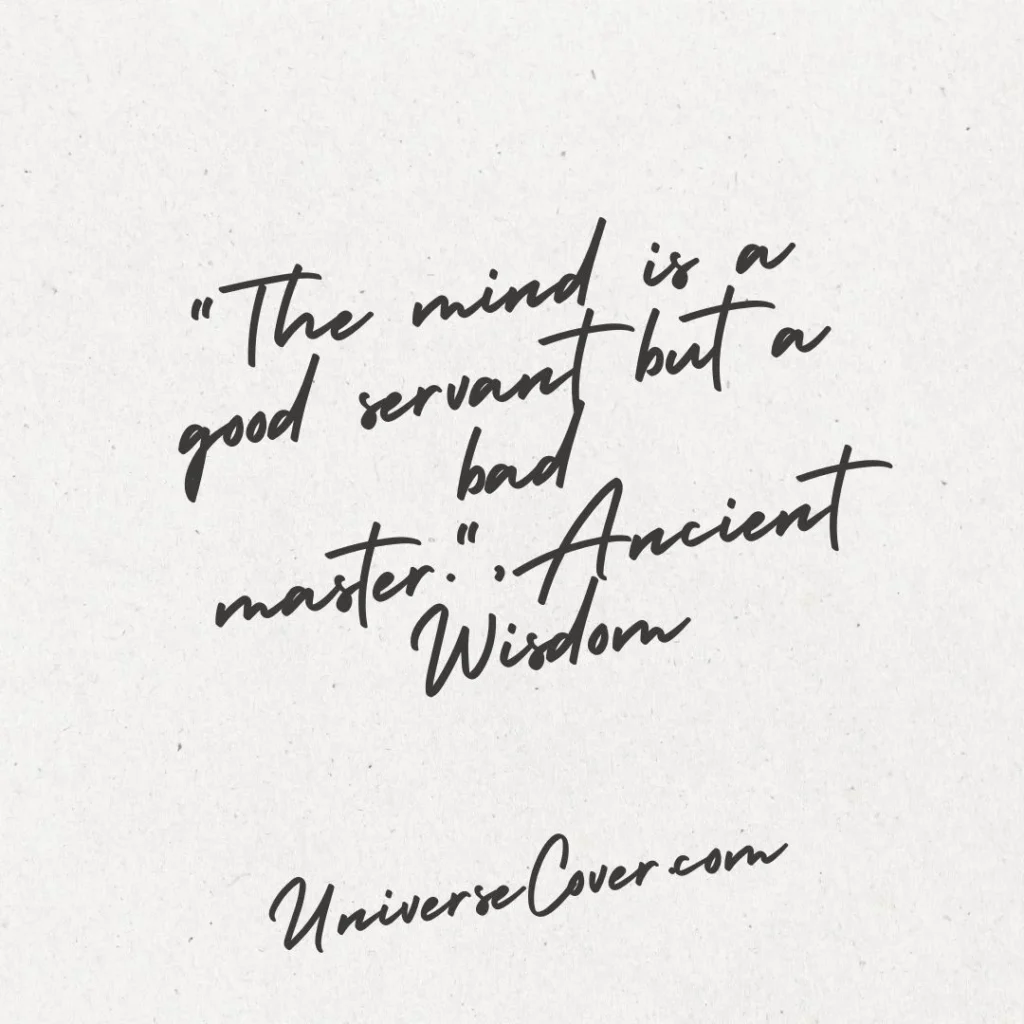 "The mind is a
good servant but a
bad
master.", Ancient
Wisdom
UniverseCover.com